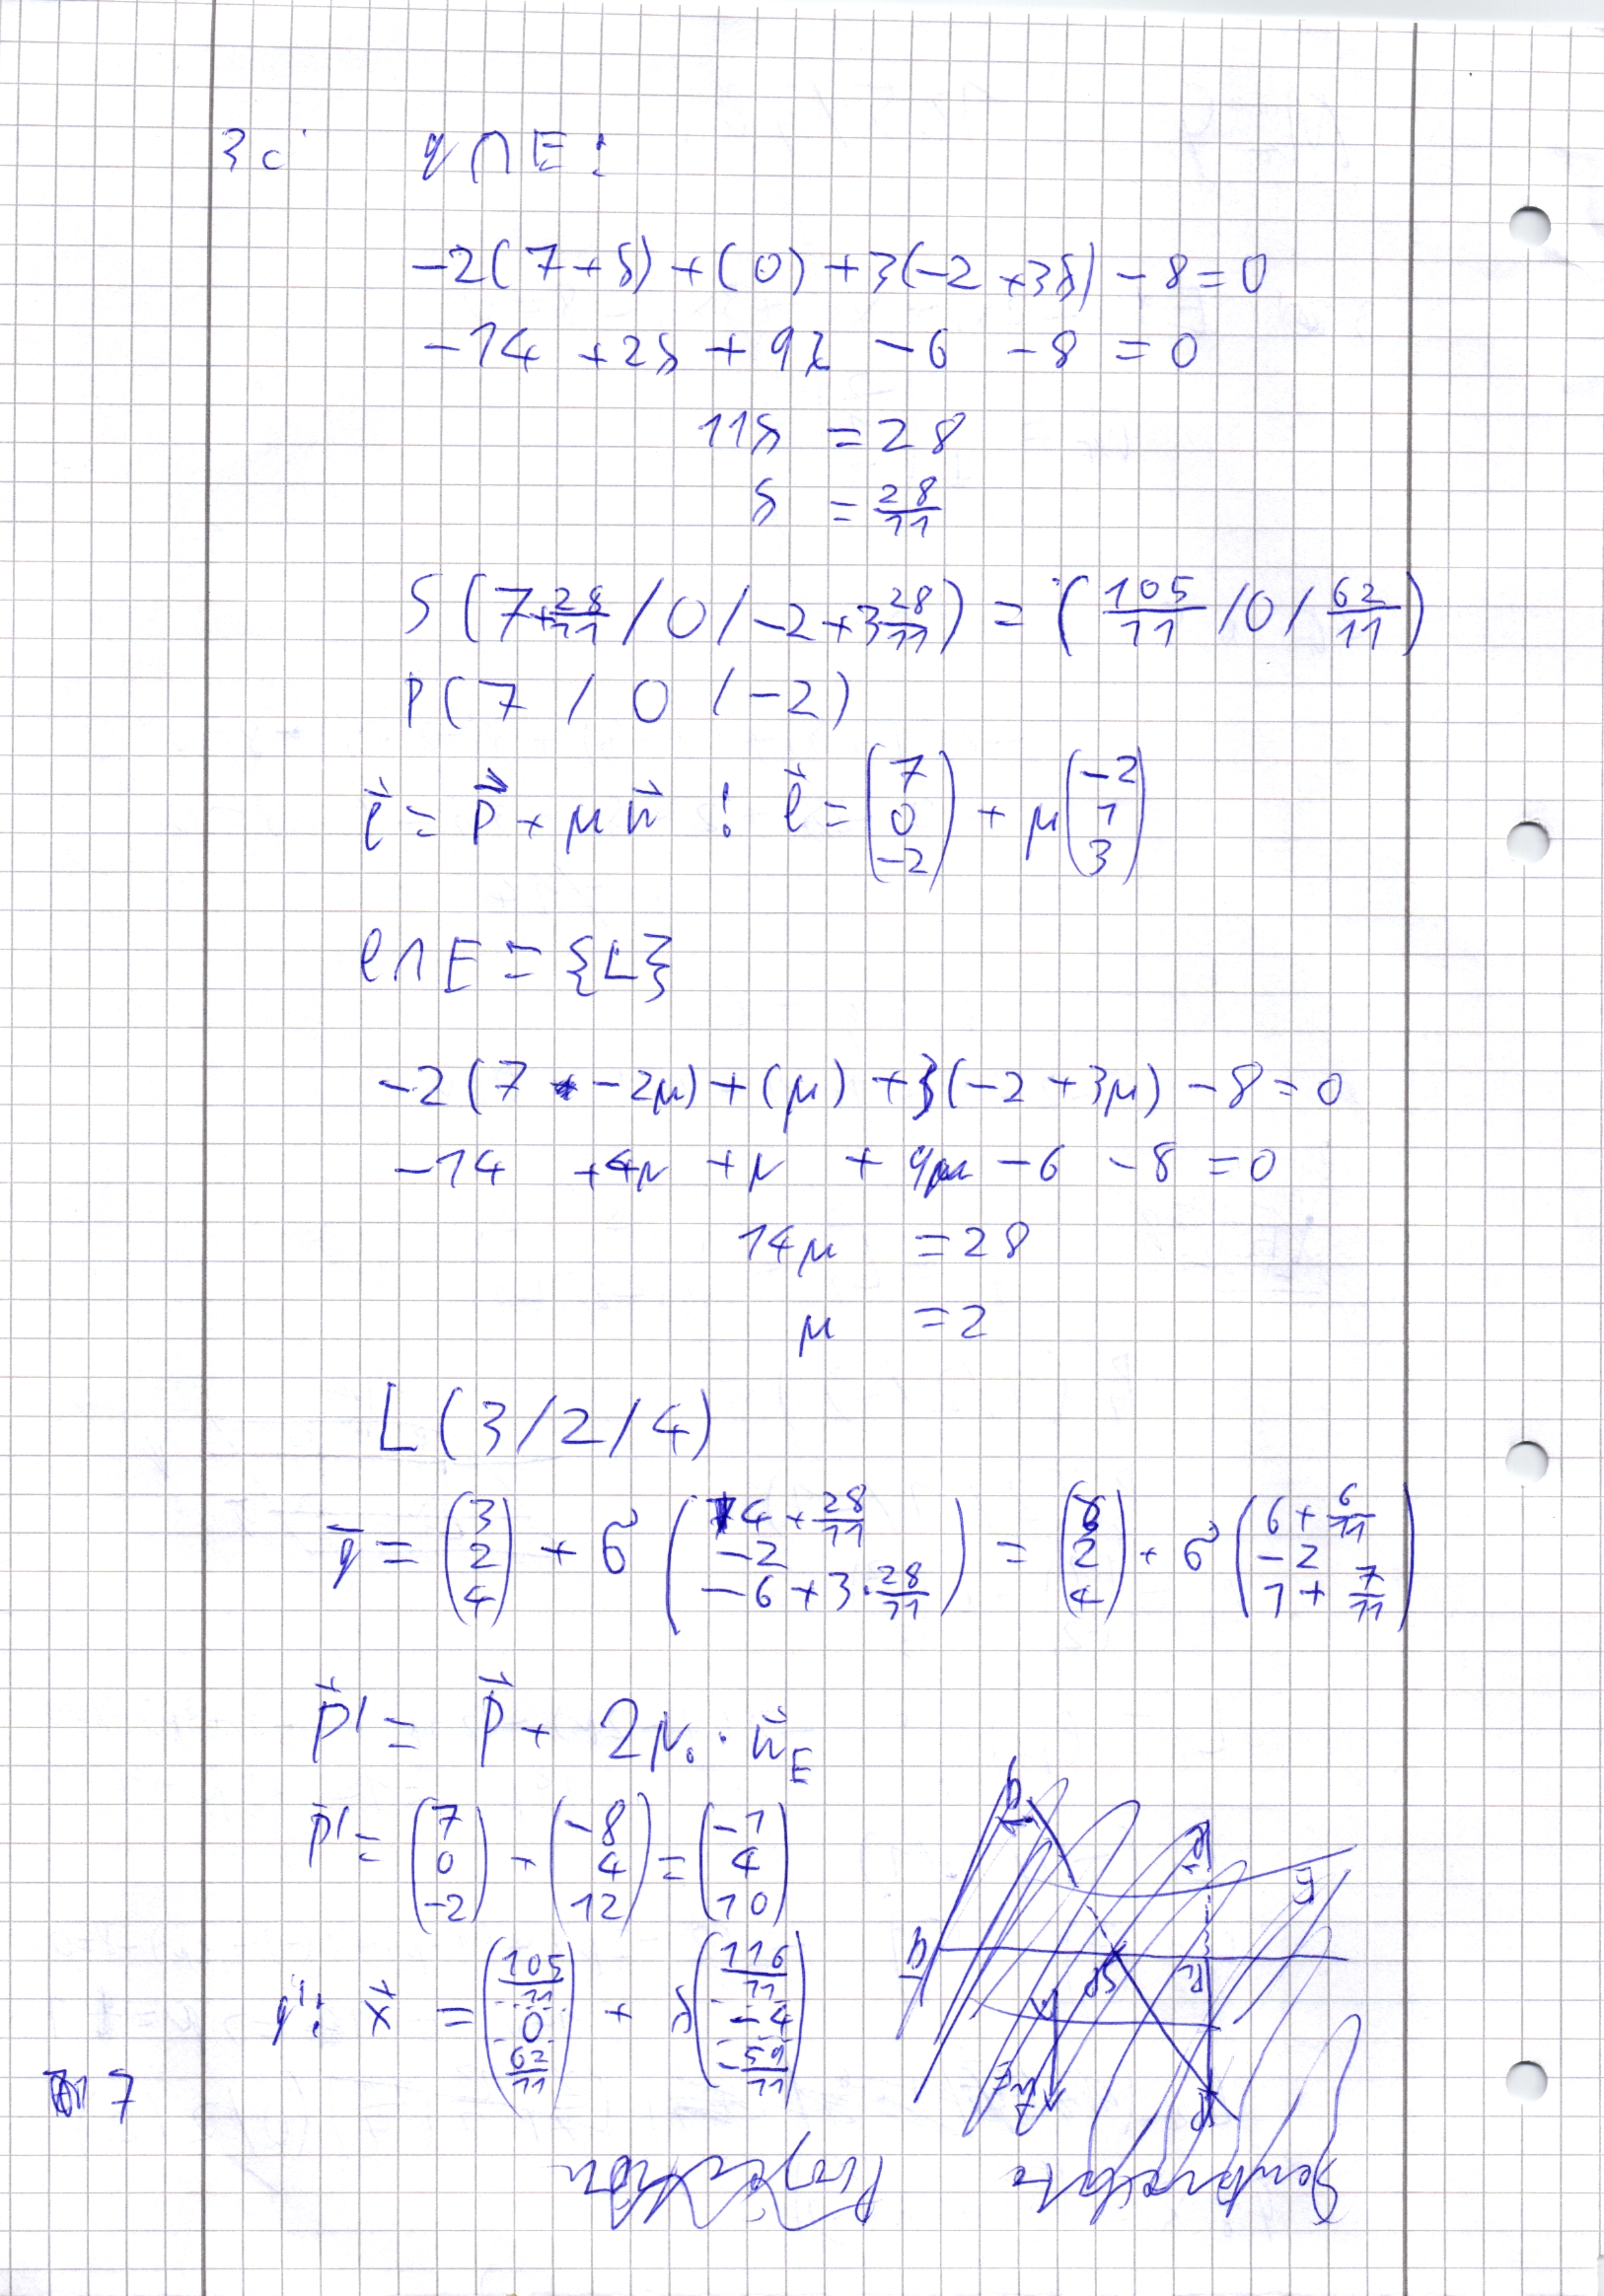 3c
q ∩ E :
-2(7+s) + (0) + 3(-2+3s) - 8 = 0
-14 + 2s + 9s - 6 - 8 = 0
11s = 28
s = 28/11
S (7+28/11 / 0 / -2+3 28/11) = (105/11 / 0 / 62/11)
P(7 / 0 / -2)
l⃗ = p⃗ + μ n⃗ ! l⃗ = (7 0 -2) + μ (-2 1 3)
l ∩ E = {L}
-2(7 + -2μ) + (μ) + 3(-2 + 3μ) - 8 = 0
-14 + 4μ + μ + 9μ - 6 - 8 = 0
14μ = 28
μ = 2
L (3/2/4)
q̅ = (3 2 4) + σ (4+28/11 -2 -6+3·28/11) = (3 2 4) + σ (6+6/11 -2 1+7/11)
p⃗' = p⃗ + 2μ₀ · n⃗_E
p⃗' = (7 0 -2) + (-8 4 12) = (-1 4 10)
q': x⃗ = (105/11 0 62/11) + s (116/11 -4 -59/11)
7
Projektion
Senkrechte